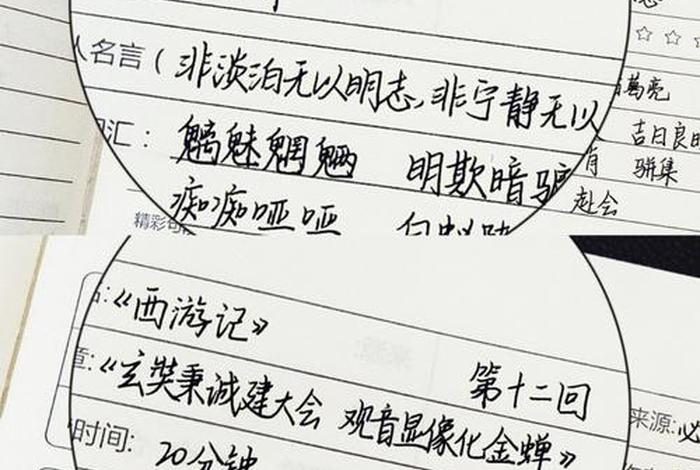 人名言(非淡泊无以明志,非宁静无以
葛亮
词汇: 魑魅魍魉 明欺暗骗
吉日良时
骈集
痴痴哑哑
赴会
精彩句
《西游记》
章:《玄奘秉诚建大会 观音显像化金蝉》
第十二回
时间: 20分钟
来源:必